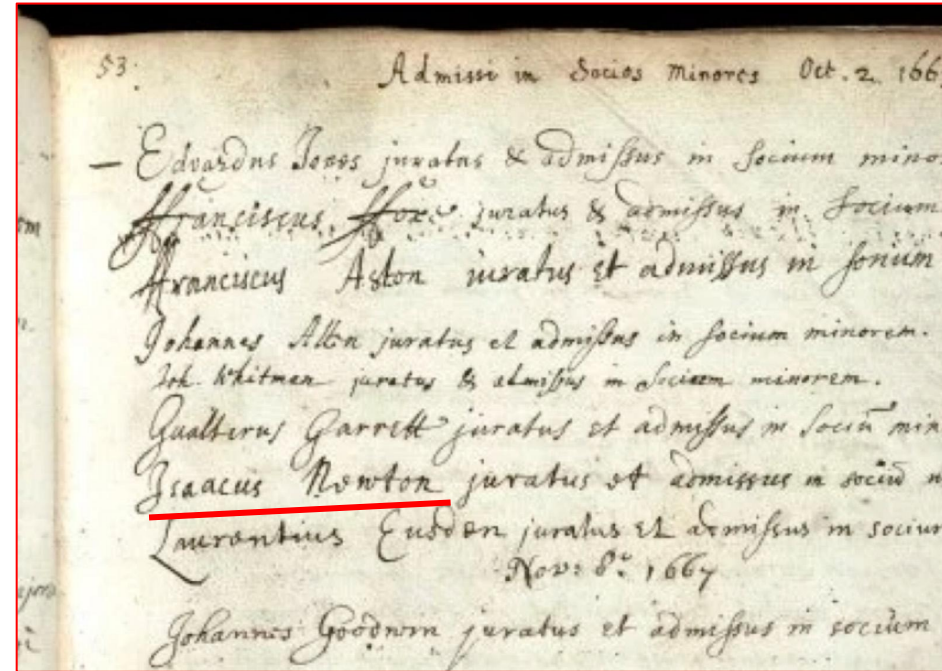 53.
Admissi in Socios Minores Oct. 2. 166
Edvardus Jones juratus & admissus in socium mino
ffranciscus ffoxe juratus & admissus in socium
ffranciscus Aston iuratus et admissus in socium
Johannes Allen juratus et admissus in socium minorem.
Joh. Whitman juratus & admissus in socium minorem.
Gualterus Garrett juratus et admissus in sociū min
Isaacus Newton juratus et admissus in sociū m
Laurentius Eusden juratus et admissus in socium
Nov: 8º. 1667
Johannes juratus et admissus in socium